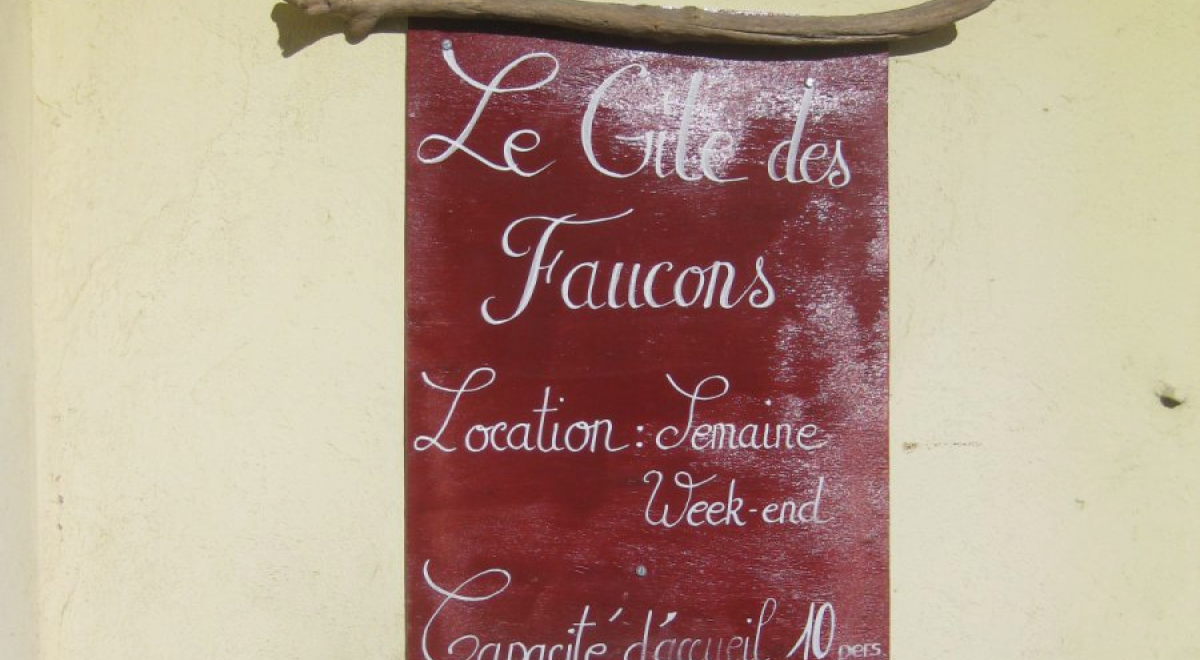 Le Gîte des
Faucons
Location : Semaine
Week-end
Capacité d'accueil 10 pers.